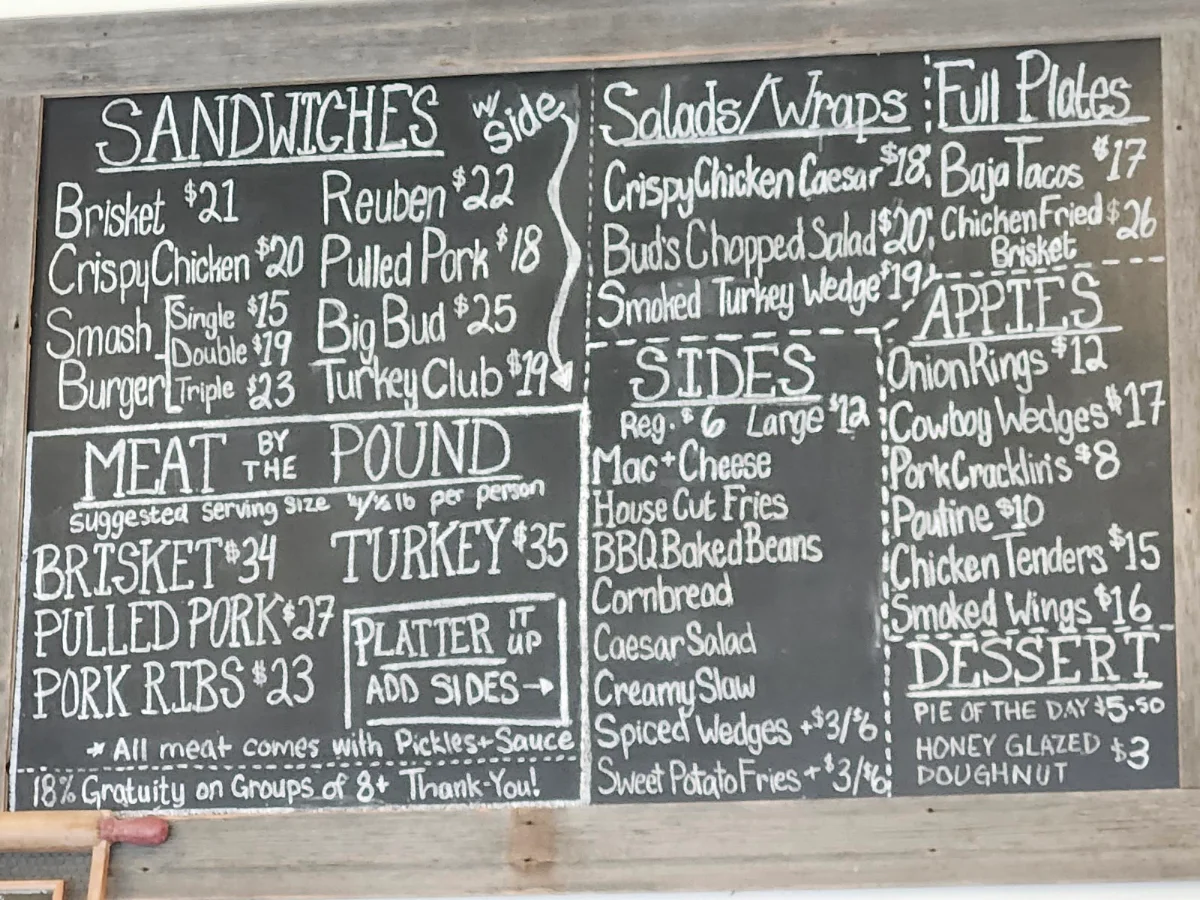 SANDWICHES w/ Side
Brisket $21
Crispy Chicken $20
Smash Burger
Single $15
Double $19
Triple $23
Reuben $22
Pulled Pork $18
Big Bud $25
Turkey Club $19
MEAT BY THE POUND
suggested serving size 1/4/1/2 lb per person
BRISKET $34
PULLED PORK $27
PORK RIBS $23
TURKEY $35
PLATTER IT UP
ADD SIDES→
* All meat comes with Pickles + Sauce
18% Gratuity on Groups of 8+ Thank-You!
Salads/Wraps
Crispy Chicken Caesar $18
Bud's Chopped Salad $20
Smoked Turkey Wedge $19
SIDES
Reg. $6 Large $12
Mac + Cheese
House Cut Fries
BBQ Baked Beans
Cornbread
Caesar Salad
Creamy Slaw
Spiced Wedges +$3/$6
Sweet Potato Fries +$3/$6
Full Plates
Baja Tacos $17
Chicken Fried $26
Brisket
APPIES
Onion Rings $12
Cowboy Wedges $17
Pork Cracklin's $8
Poutine $10
Chicken Tenders $15
Smoked Wings $16
DESSERT
PIE OF THE DAY $5.50
HONEY GLAZED $3
DOUGHNUT